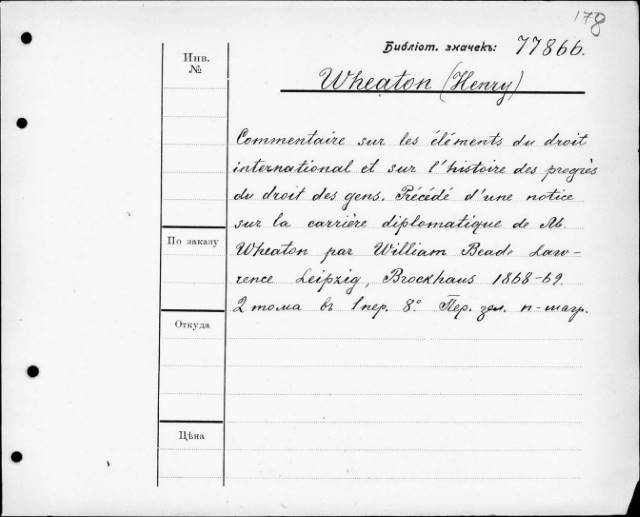 178
Библіот. значекъ: 77866.
Инв.
№
Wheaton (Henry)
Commentaire sur les éléments du droit
international et sur l'histoire des progrès
du droit des gens. Précédé d'une notice
sur la carrière diplomatique de M.
По заказу
Wheaton par William Beade Law-
rence Leipzig, Brockhaus 1868-69.
2 тома въ 1 пер. 8° Пер. зел. п-шагр.
Откуда
Цѣна